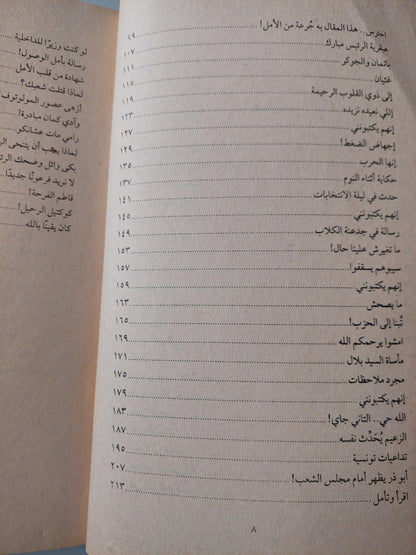 احترس.. هذا المقال به جُرعة من الأمل! ٩٩
عبقرية الرئيس مبارك ١٠٧
باتمان والجوكر ١١١
غثيان ١٢١
إلى ذوي القلوب الرحيمة ١١٥
إللي نعيده نزيده ١٢٣
إنهم يكتبونني ١٢٧
إجهاض الضغط! ١٢٩
إنها الحرب ١٣٥
حكاية أثناء النوم ١٣٧
حدث في ليلة الانتخابات ١٤١
إنهم يكتبونني ١٤٥
رسالة في جدعنة الكلاب ١٤٩
ما تغيرش علينا حال! ١٥٣
سيبوهم يسقفوا ١٥٧
إنهم يكتبونني ١٦١
ما يصحش ١٦٣
تُبنا إلى الحزب! ١٦٥
امشوا يرحمكم الله ١٦٩
مأساة السيد بلال ١٧١
مجرد ملاحظات ١٧٥
إنهم يكتبونني ١٧٩
الله حي.. التاني جاي! ١٨٣
الزعيم يُحَدِّث نفسه ١٨٧
تداعيات تونسية ١٩٥
أبو ذر يظهر أمام مجلس الشعب! ٢٠٧
اقرأ وتأمل ٢١٣
٨
لو كنت وزيرًا للداخلية
رسالة بأمل الوصول!
شهادة من قلب الأمل
لماذا قتلت شعبك؟
أزهى عصور المولوتوف
وآدي كمان مبادرة!
رامي مات عشانكو
لماذا يجب أن يتنحى
بكى وائل وضحك
لا نريد فرعونًا جديدًا
قاطم الفرحة!
كوكتيل الرحيل!
كان يقينًا بالله